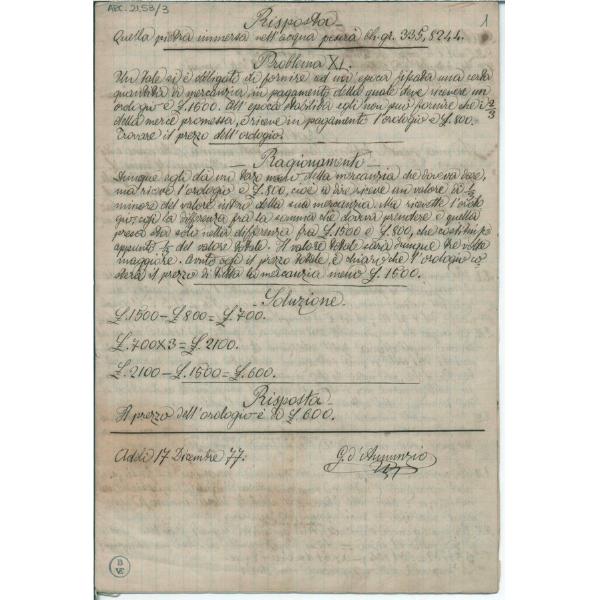 ARC. 21.53/3
1
Risposta
Quella pietra immersa nell'acqua peserà Ch. gr. 335,8244.
Problema XI.
Un tale si è obbligato di fornire ad un epoca fissata una certa
quantità di mercanzia, in pagamento della quale deve ricevere un
orologio e £.1500. All'epoca stabilita egli non può fornire che i 2/3
della merce promessa, e riceve in pagamento l'orologio e £.800.
Trovare il prezzo dell'orologio.
Ragionamento
Dunque egli dà un terzo meno della mercanzia che doveva dare,
ma riceve l'orologio e £.800, cioè a dire riceve un valore di 1/3
minore del valore intero della sua mercanzia. Ma ricevette l'orolo
gio; così la differenza fra la somma che doveva prendere e quella
presa sta solo nella differenza fra £.1500 e £.800, che costituisce
appunto 1/3 del valore totale. Il valore totale sarà dunque tre volte
maggiore. Avuto così il prezzo totale, è chiaro che l'orologio co
sterà il prezzo di tutta la mercanzia meno £.1500.
Soluzione.
£.1500 – £.800 = £.700.
£.700x3 = £.2100.
£.2100 – £.1500 = £.600.
Risposta
Il prezzo dell'orologio è di £.600.
Addì 17 Dicembre 77.
G. d'Annunzio